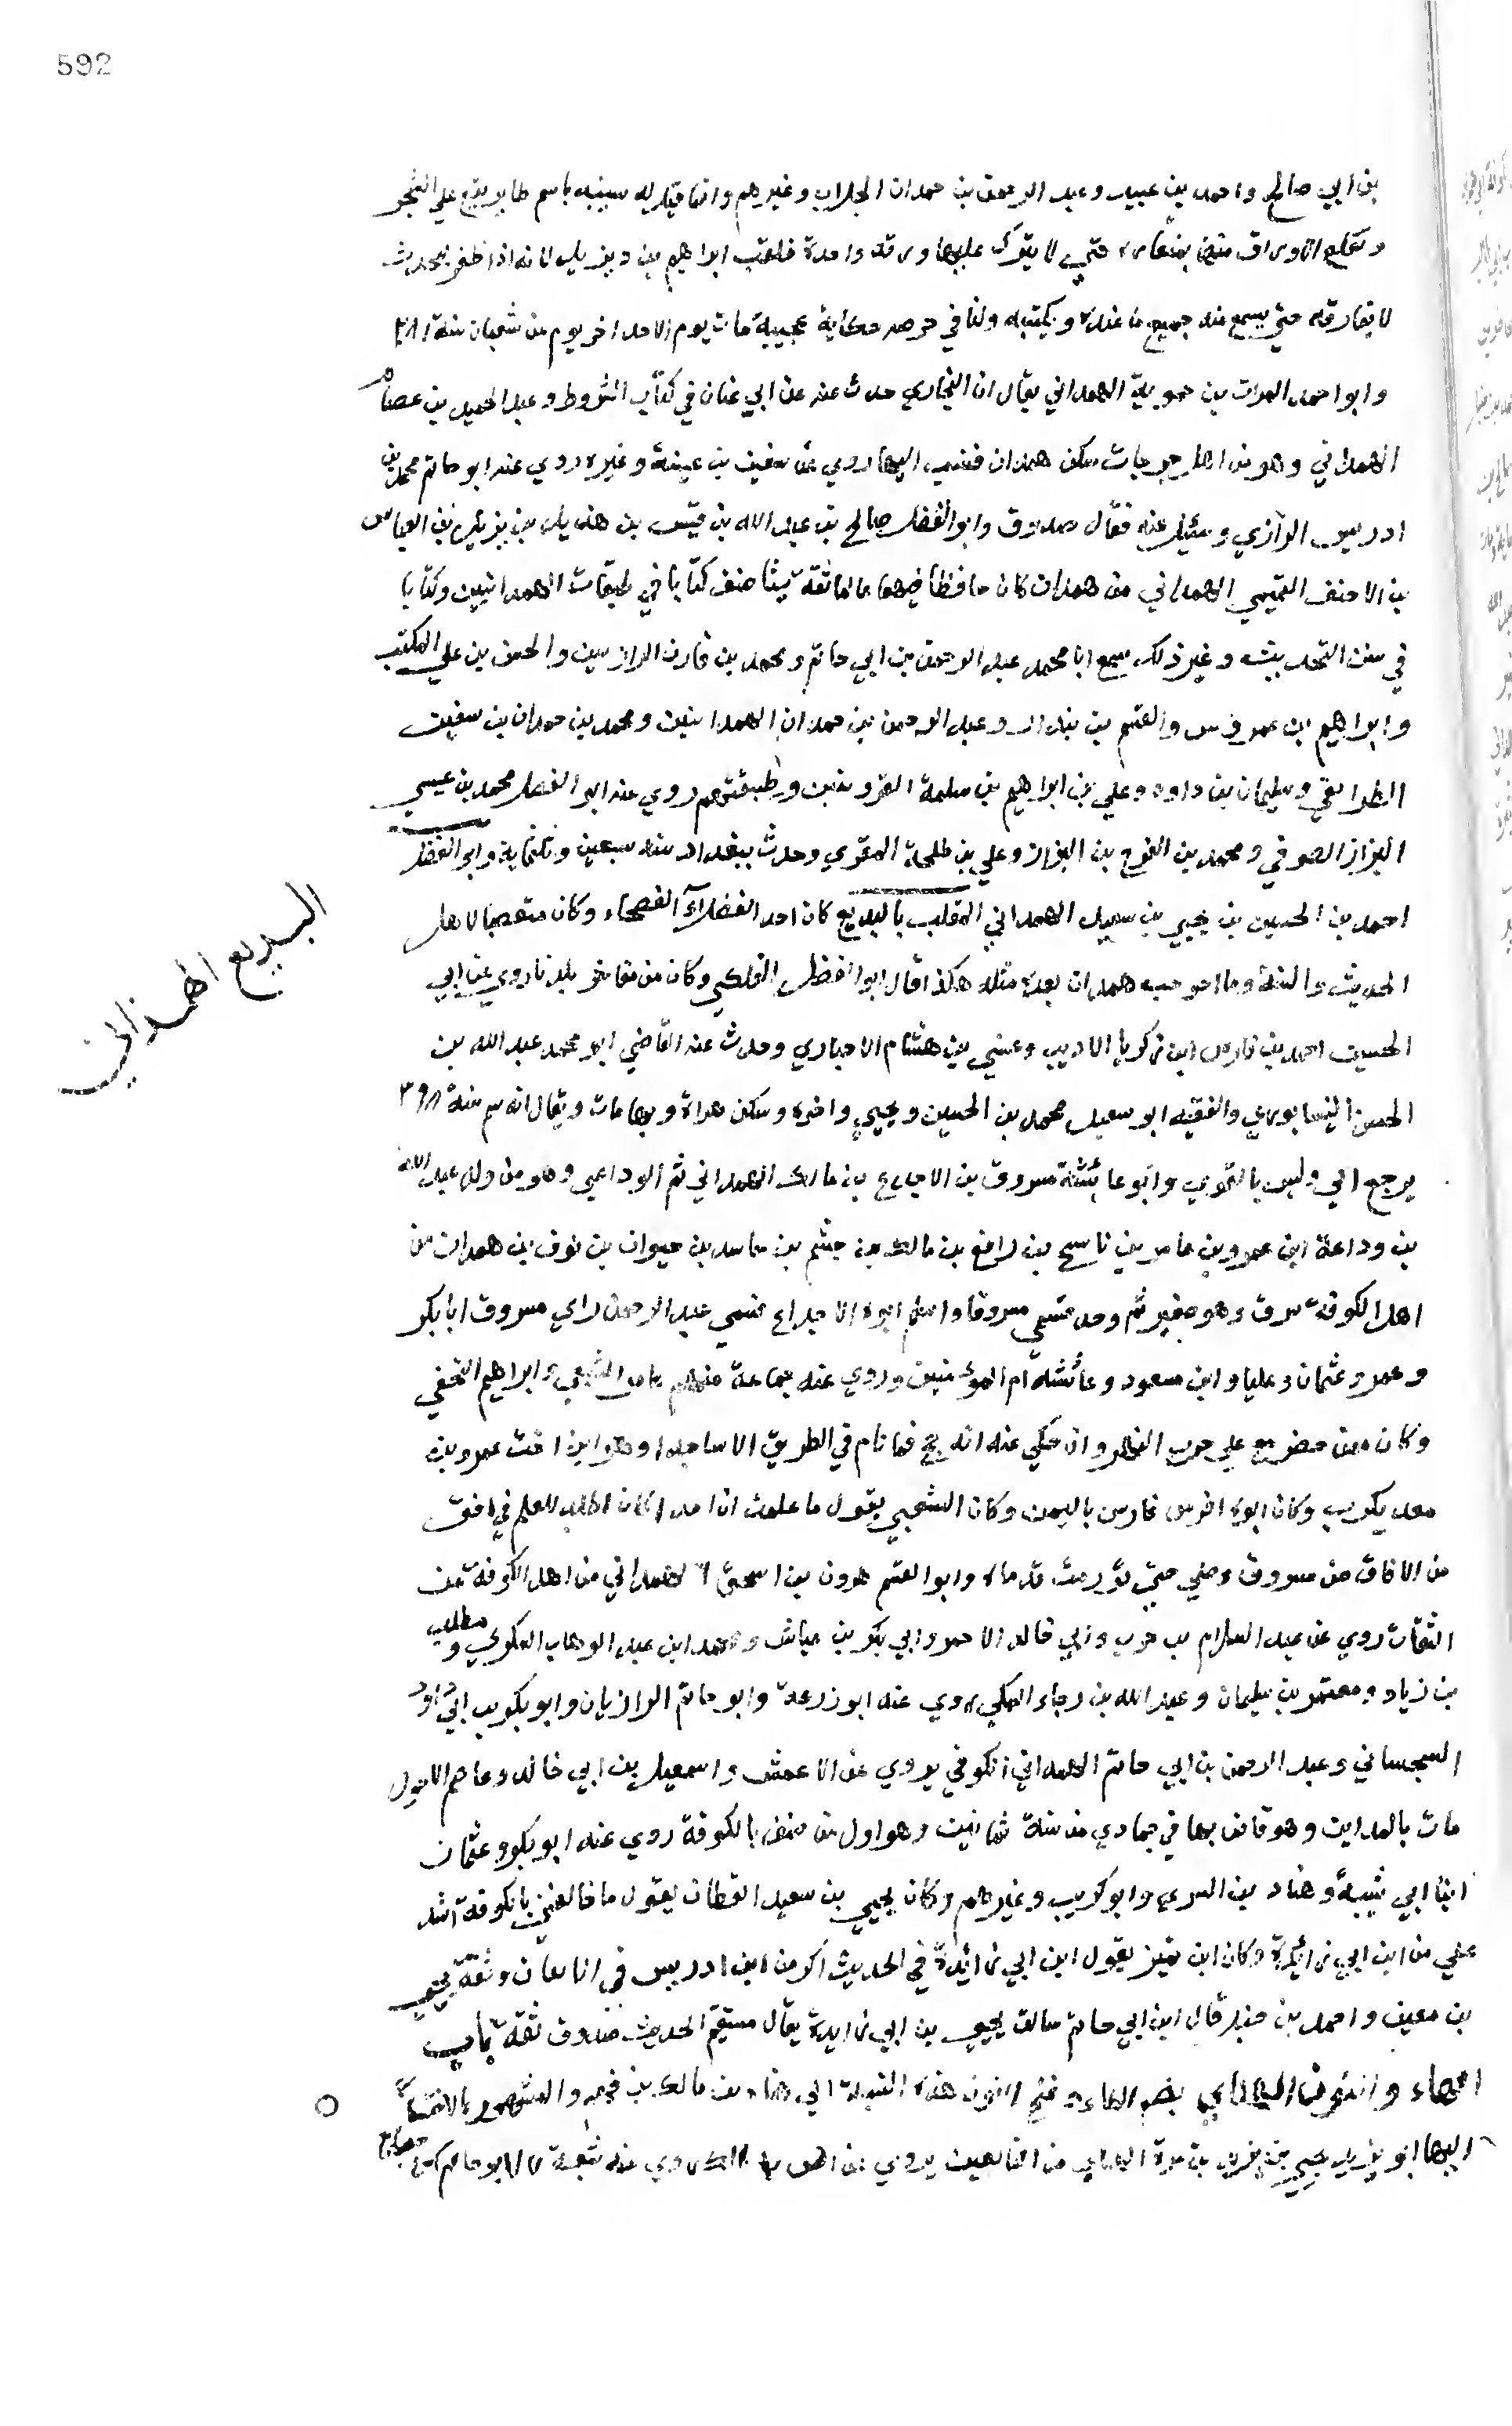 592
بن ابي صالح واحمد بن عبيد وعبد الرحمن بن حمدان الجلاب وغيرهم وانما قيل له سيبنه باسم طاير يقع علي الشجر
الاوراق منها حتي لا يترك عليها ورقة واحدة فلقب ابراهيم بن ديزيل لانه اذا ظفر بمحدث
لا يفارقه حتي يسمع منه جميع ما عنده ويكتبه ولنا في حرصه حكاية عجيبة مات يوم الاحد اخر يوم من شعبان سنة ٢٨١
وابو احمد المرار بن حمويه الهمداني يقال ان البخاري حدث عنه عن ابي غسان في كتاب الشروط وعبد الحميد بن عصام
الهمداني وهو من اهل جرجان سكن همدان فنسب اليها روي عن سفين بن عيينة وغيره روي عنه ابو حاتم محمد بن
ادريس الرازي وسئل عنه فقال صدوق وابو الفضل صالح بن عبد الله بن قيس بن هذيل بن يزيد بن العباس
بن الاحنف التميمي الهمداني من همدان كان حافظا فهما عالما ثقة ثبتا صنف كتابا في طبقات الهمدانيين وكتابا
في سنن التحديث وغير ذلك سمع ابا محمد عبد الرحمن بن ابي حاتم ومحمد بن قارن الرازيين والحسن بن علي المكتب
وابراهيم بن عمروس والقسم بن بندار وعبد الرحمن بن حمدان الهمدانيين ومحمد بن حمدان بن سفين
الطرايقي وسليمان بن داود وعلي بن ابراهيم بن سلمة القزوينين وطبقتهم روي عنه ابو الفضل محمد بن عيسي
البزاز الصوفي ومحمد بن الفرج بن البزاز وعلي بن طلحة المقري وحدث ببغداد سنه سبعين وثلثماية وابو الفضل
احمد بن الحسين بن يحيي بن سعيد الهمداني الملقب بالبديع كان احد الفضلاء الفصحاء وكان متعصبا لاهل
البديع الهمذاني
الحديث والسنة وما اخرجت همدان بعده مثله هكذا قال ابو الفضل الفلكي وكان من مفاخر بلدنا روي عن ابي
الحسين احمد بن فارس ابن زكريا الاديب وعيسي بن هشام الاخباري وحدث عنه القاضي ابو محمد عبد الله بن
الحسن النيسابوري والفقيه ابو سعيد محمد بن الحسين ويحيي واخوه وسكن هراة وبها مات ويقال انه سم سنة ٣٩٨
يرجع الي وليس بالقوي وابو عائشة مسروق بن الاجدع بن مالك الهمداني ثم الوداعي وهو من ولد عبد الله
بن وداعة ابن عمرو بن عامر بن ناسج بن رافع بن مالك بن جشم بن حاسد بن خيوان بن نوف بن همدان من
اهل الكوفة سرق وهو صغير ثم وجد فسمي مسروقا واسلم ابوه الاجدع فسمي عبد الرحمن راي مسروق ابا بكر
وعمر وعثمان وعليا وابن مسعود وعائشة ام المؤمنين وروي عنه جماعة منهم عامر الشعبي وابراهيم النخعي
وكان ممن حضر مع علي حرب الخوارج وحكي عنه انه حج فما نام في الطريق الا ساجدا وهو ابن اخت عمرو بن
معدي كرب وكان ابوه افرس فارس باليمن وكان الشعبي يقول ما علمت ان احدا كان اطلب للعلم في افق
من الافاق من مسروق وصلي حتي تورمت قدماه وابو القسم هرون بن اسحق الهمداني من اهل الكوفة من
الثقات روي عن عبد السلام بن حرب وابي خالد الاحمر وابي بكر بن عياش ومحمد ابن عبد الوهاب السكري ومطلب
بن زياد ومعتمر بن سليمان وعبد الله بن رجاء المكي روي عنه ابو زرعة وابو حاتم الرازيان وابو بكر بن ابي داود
السجستاني وعبد الرحمن بن ابي حاتم الهمداني الكوفي يروي عن الاعمش واسمعيل بن ابي خالد وعاصم الاحول
مات بالمداين وهو قاض بها في جمادي من سنة ثمانين وهو اول من صنف بالكوفة روي عنه ابو بكر وعثمان
ابنا ابي شيبة وهناد بن السري وابو كريب وغيرهم وكان يحيي بن سعيد القطان يقول ما خالفني بالكوفة اشد
علي من ابن ابي زائدة وكان ابن نمير يقول ابن ابي زائدة في الحديث اكثر من ابن ادريس في الاتقان وثقة يحيي
بن معين واحمد بن حنبل قال ابن ابي حاتم سالت يحيي بن ابي زايدة يقال مستقيم الحديث صدوق ثقة باب
الهاء والنون الهنائي بضم الهاء وفتح النون هذه النسبة الي هناة بن مالك بن فهم والمشهور بالانتساب
اليها ابو يزيد يحيي بن يزيد بن مرة الهنائي من التابعين يروي عن انس بن مالك روي عنه شعبة